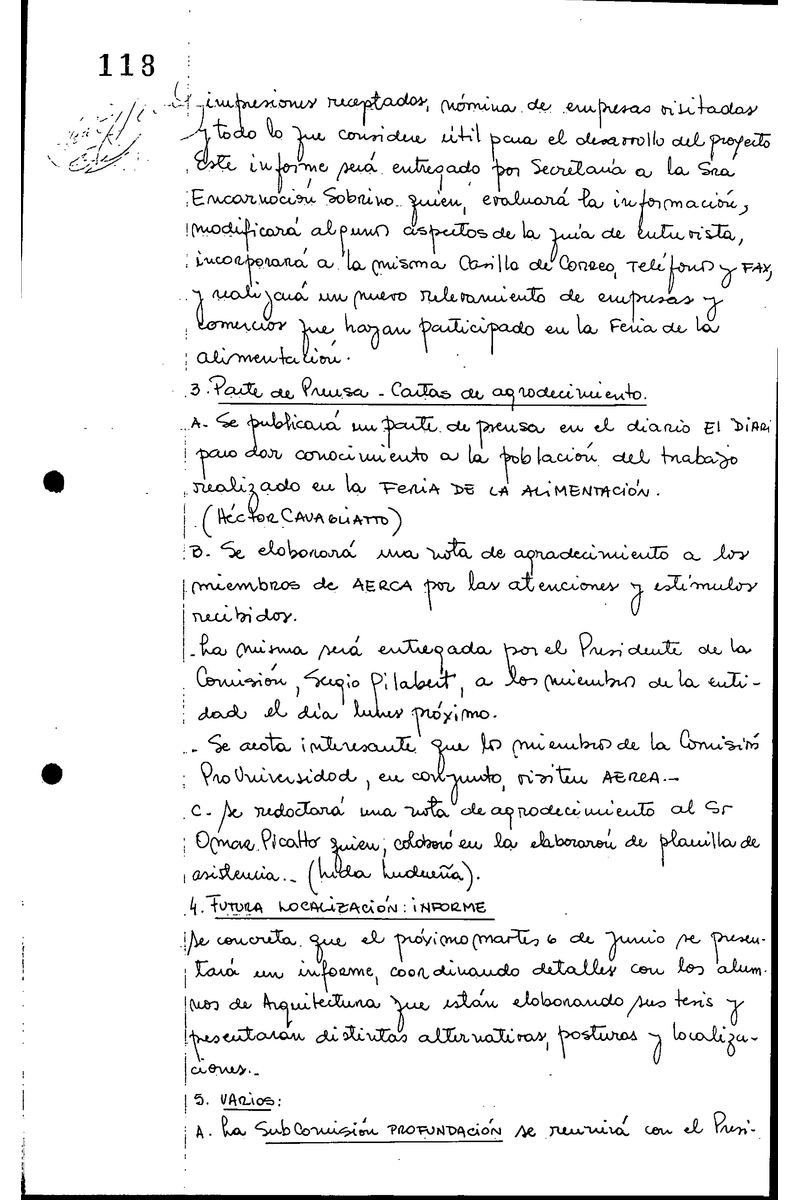 118
impresiones receptadas, nómina de empresas visitadas
y todo lo que considere útil para el desarrollo del proyecto
Este informe será entregado por Secretaría a la Sra
Encarnación Sobrino quien, evaluará la información,
modificará algunos aspectos de la guía de entrevista,
incorporará a la misma Casilla de Correo, Teléfonos y FAX,
y realizará un nuevo relevamiento de empresas y
comercios que hayan participado en la Feria de la
alimentación.
3. Parte de Prensa - Cartas de agradecimiento.
A- Se publicará un parte de prensa en el diario El DiARi
para dar conocimiento a la población del trabajo
realizado en la FERIA DE LA ALIMENTACIÓN.
(HéCTOR CAVAGLIATTO)
B- Se elaborará una nota de agradecimiento a los
miembros de AERCA por las atenciones y estímulos
recibidos.
- La misma será entregada por el Presidente de la
Comisión, Sergio Pilabert, a los miembros de la enti-
dad el día lunes próximo.
- Se acota interesante que los miembros de la Comisión
ProUniversidad, en conjunto, visiten AERCA.-
C- Se redactará una nota de agradecimiento al Sr
Omar Picatto quien, colaboró en la elaboraron de planilla de
asistencia.- (Lida Ludueña).
4. FUTURA LOCALIZACIÓN: INFORME
Se concreta que el próximo martes 6 de Junio se presen-
tará un informe, coordinando detalles con los alum-
nos de Arquitectura que están elaborando sus tesis y
presentarán distintas alternativas, posturas y localiza-
ciones.-
5. VARIOS:
A. La SubComisión PROFUNDACIÓN se reunirá con el Presi-